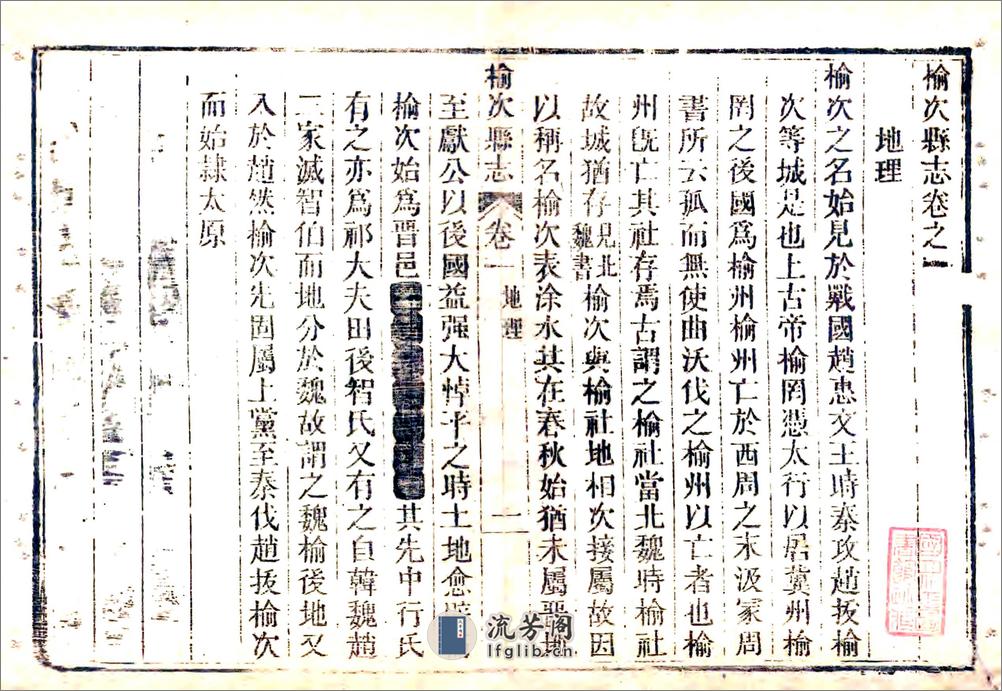 榆次縣志卷之一
地理
榆次之名始見於戰國趙惠文王時秦攻趙拔榆
次等城是也上古帝榆罔憑太行以居冀州榆
罔之後國爲榆州榆州亡於西周之末汲冢周
書所云孤而無使曲沃伐之榆州以亡者也榆
州旣亡其社存焉古謂之榆社當北魏時榆社
故城猶存見北魏書榆次與榆社地相次接屬故因
以稱名榆次表涂水共在春秋始猶未屬晋地
榆次縣志 卷一 地理 一
至獻公以後國益强大悼平之時土地愈
榆次始爲晋邑 其先中行氏
有之亦爲祁大夫田後智氏又有之自韓魏趙
二家滅智伯而地分於魏故謂之魏榆後地又
入於趙然榆次先固屬上黨至秦伐趙拔榆次
而始隸太原
流芳阁
lfglib.cn